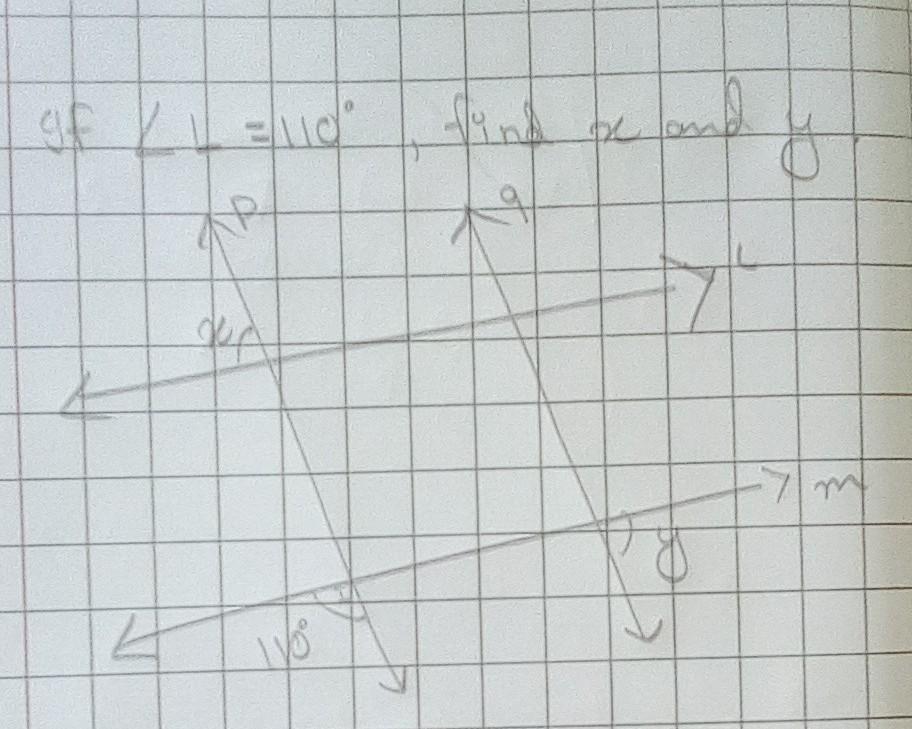 If ∠1 = 110°, find x and y.
p
q
L
x
m
y
110°